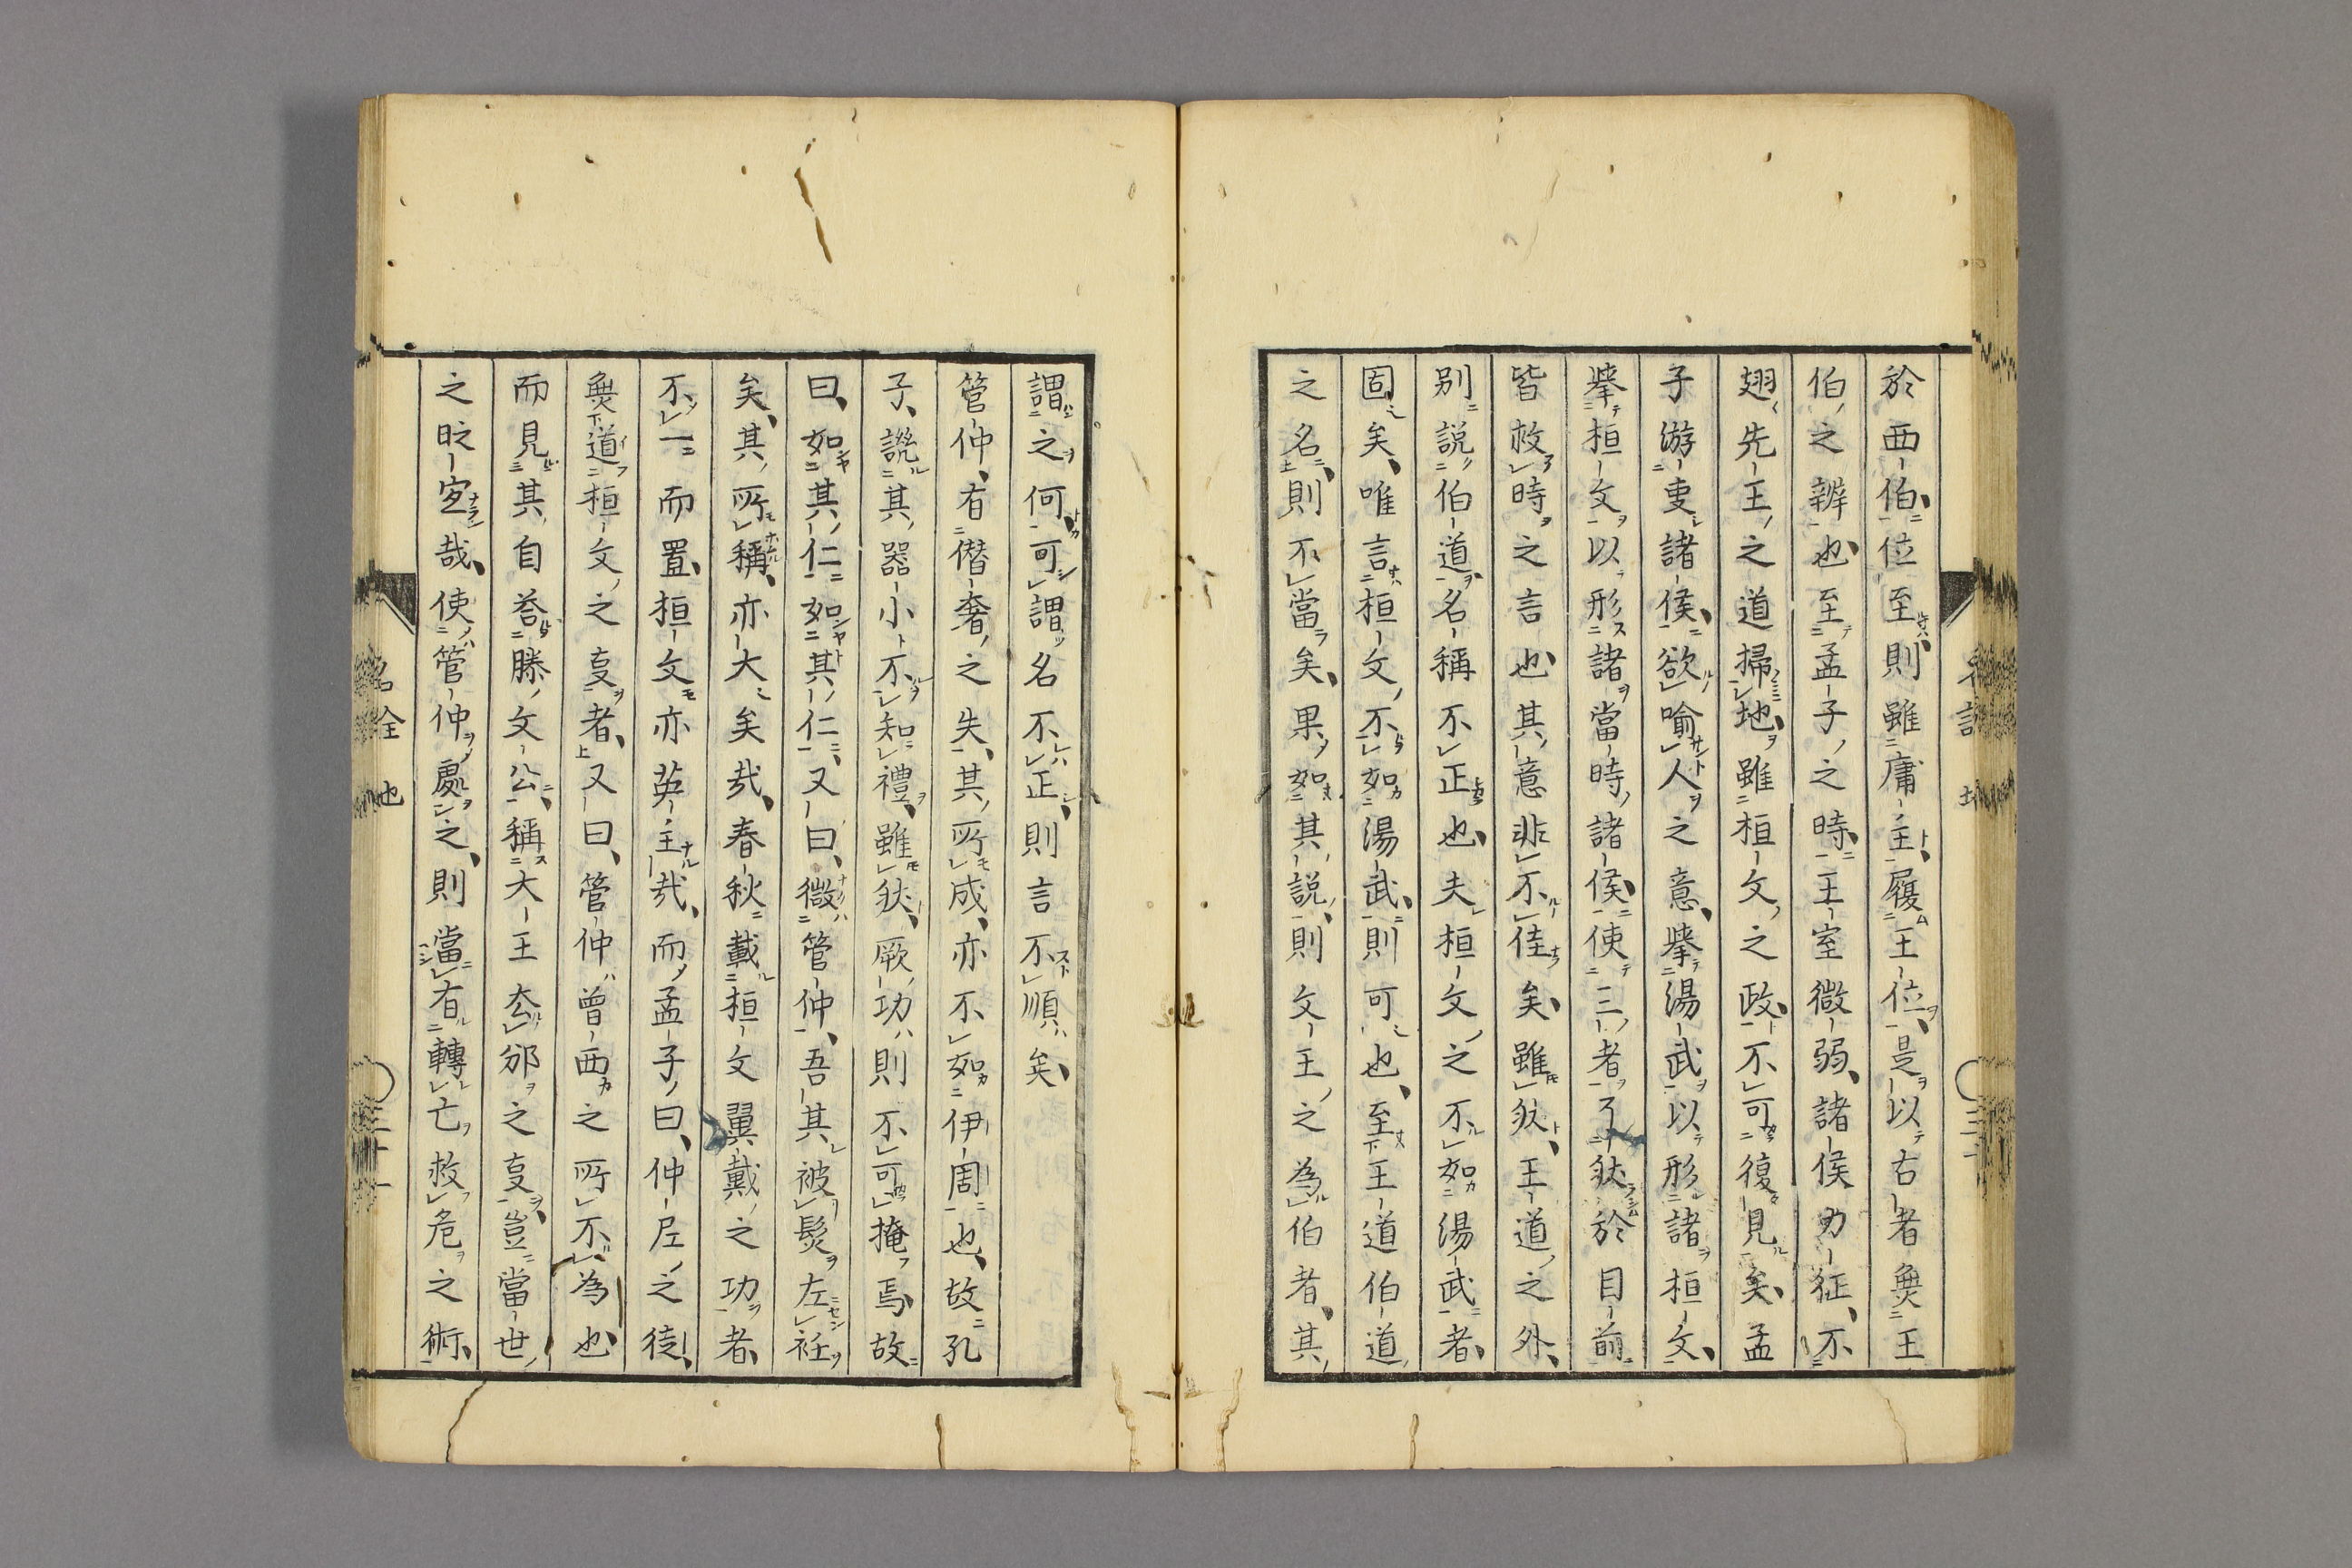 於西伯位至則雖庸主履王位是以右者無王
伯之辨也至孟子之時王室微弱諸侯力征不
翅先王之道掃地雖桓文之政不可復見矣孟
子游事諸侯欲喻人之意擧湯武以形諸桓文
擧桓文以形諸當時諸侯使三者了然於目前
皆救時之言也其意非不佳矣雖然王道之外
別說伯道名稱不正也夫桓文之不如湯武者
固矣唯言桓文不如湯武則可也至王道伯道
之名則不當矣果如其說則文王之為伯者其
謂之何可謂名不正則言不順矣
管仲有僭奢之失其所成亦不如伊周也故孔
子譏其器小不知禮雖然厥功則不可掩焉故
曰如其仁如其仁又曰微管仲吾其被髮左衽
矣其所稱亦大矣哉春秋載桓文翼戴之功者
不一而置桓文亦英主哉而孟子曰仲尼之徒
無道桓文之事者又曰管仲曾西之所不為也
而見其自荅滕文公稱大王去邠之事豈當世
之时宜哉使管仲處之則當有轉亡救危之術